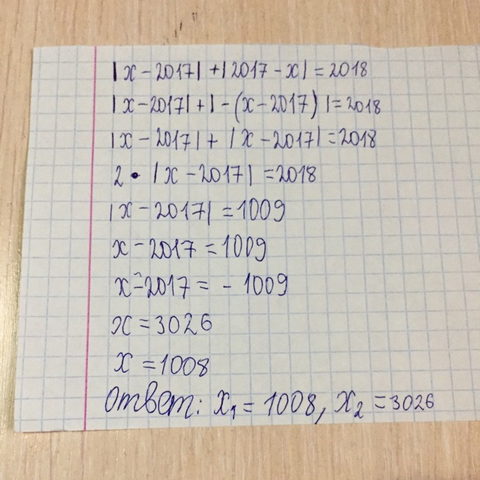 |x - 2017| + |2017 - x| = 2018
|x - 2017| + | - (x - 2017) | = 2018
|x - 2017| + |x - 2017| = 2018
2 • |x - 2017| = 2018
|x - 2017| = 1009
x - 2017 = 1009
x - 2017 = - 1009
x = 3026
x = 1008
Ответ: x₁ = 1008, x₂ = 3026